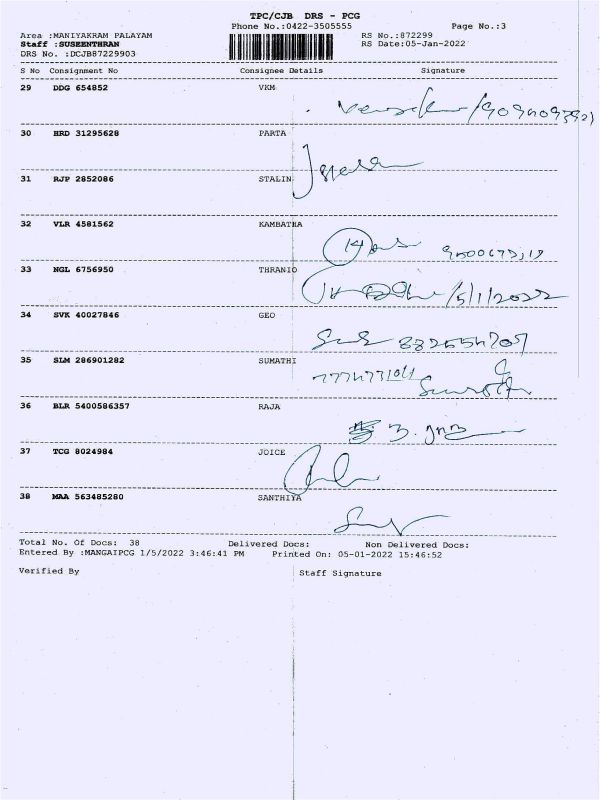 TPC/CJB DRS - PCG
Phone No.:0422-3505555 Page No.:3
Area :MANIYAKRAM PALAYAM RS No.:872299
Staff :SUSEENTHRAN RS Date:05-Jan-2022
DRS No. :DCJB87229903
S No Consignment No Consignee Details Signature
29 DDG 654852 VKM
30 HRD 31295628 PARTA
31 RJP 2852086 STALIN
32 VLR 4581562 KAMBATHA
33 NGL 6756950 THRANIO
/5/1/2022
34 SVK 40027846 GEO
35 SLM 286901282 SUMATHI
36 BLR 5400586357 RAJA
37 TCG 8024984 JOICE
38 MAA 563485280 SANTHIYA
Total No. Of Docs: 38 Delivered Docs: Non Delivered Docs:
Entered By :MANGAIPCG 1/5/2022 3:46:41 PM Printed On: 05-01-2022 15:46:52
Verified By Staff Signature